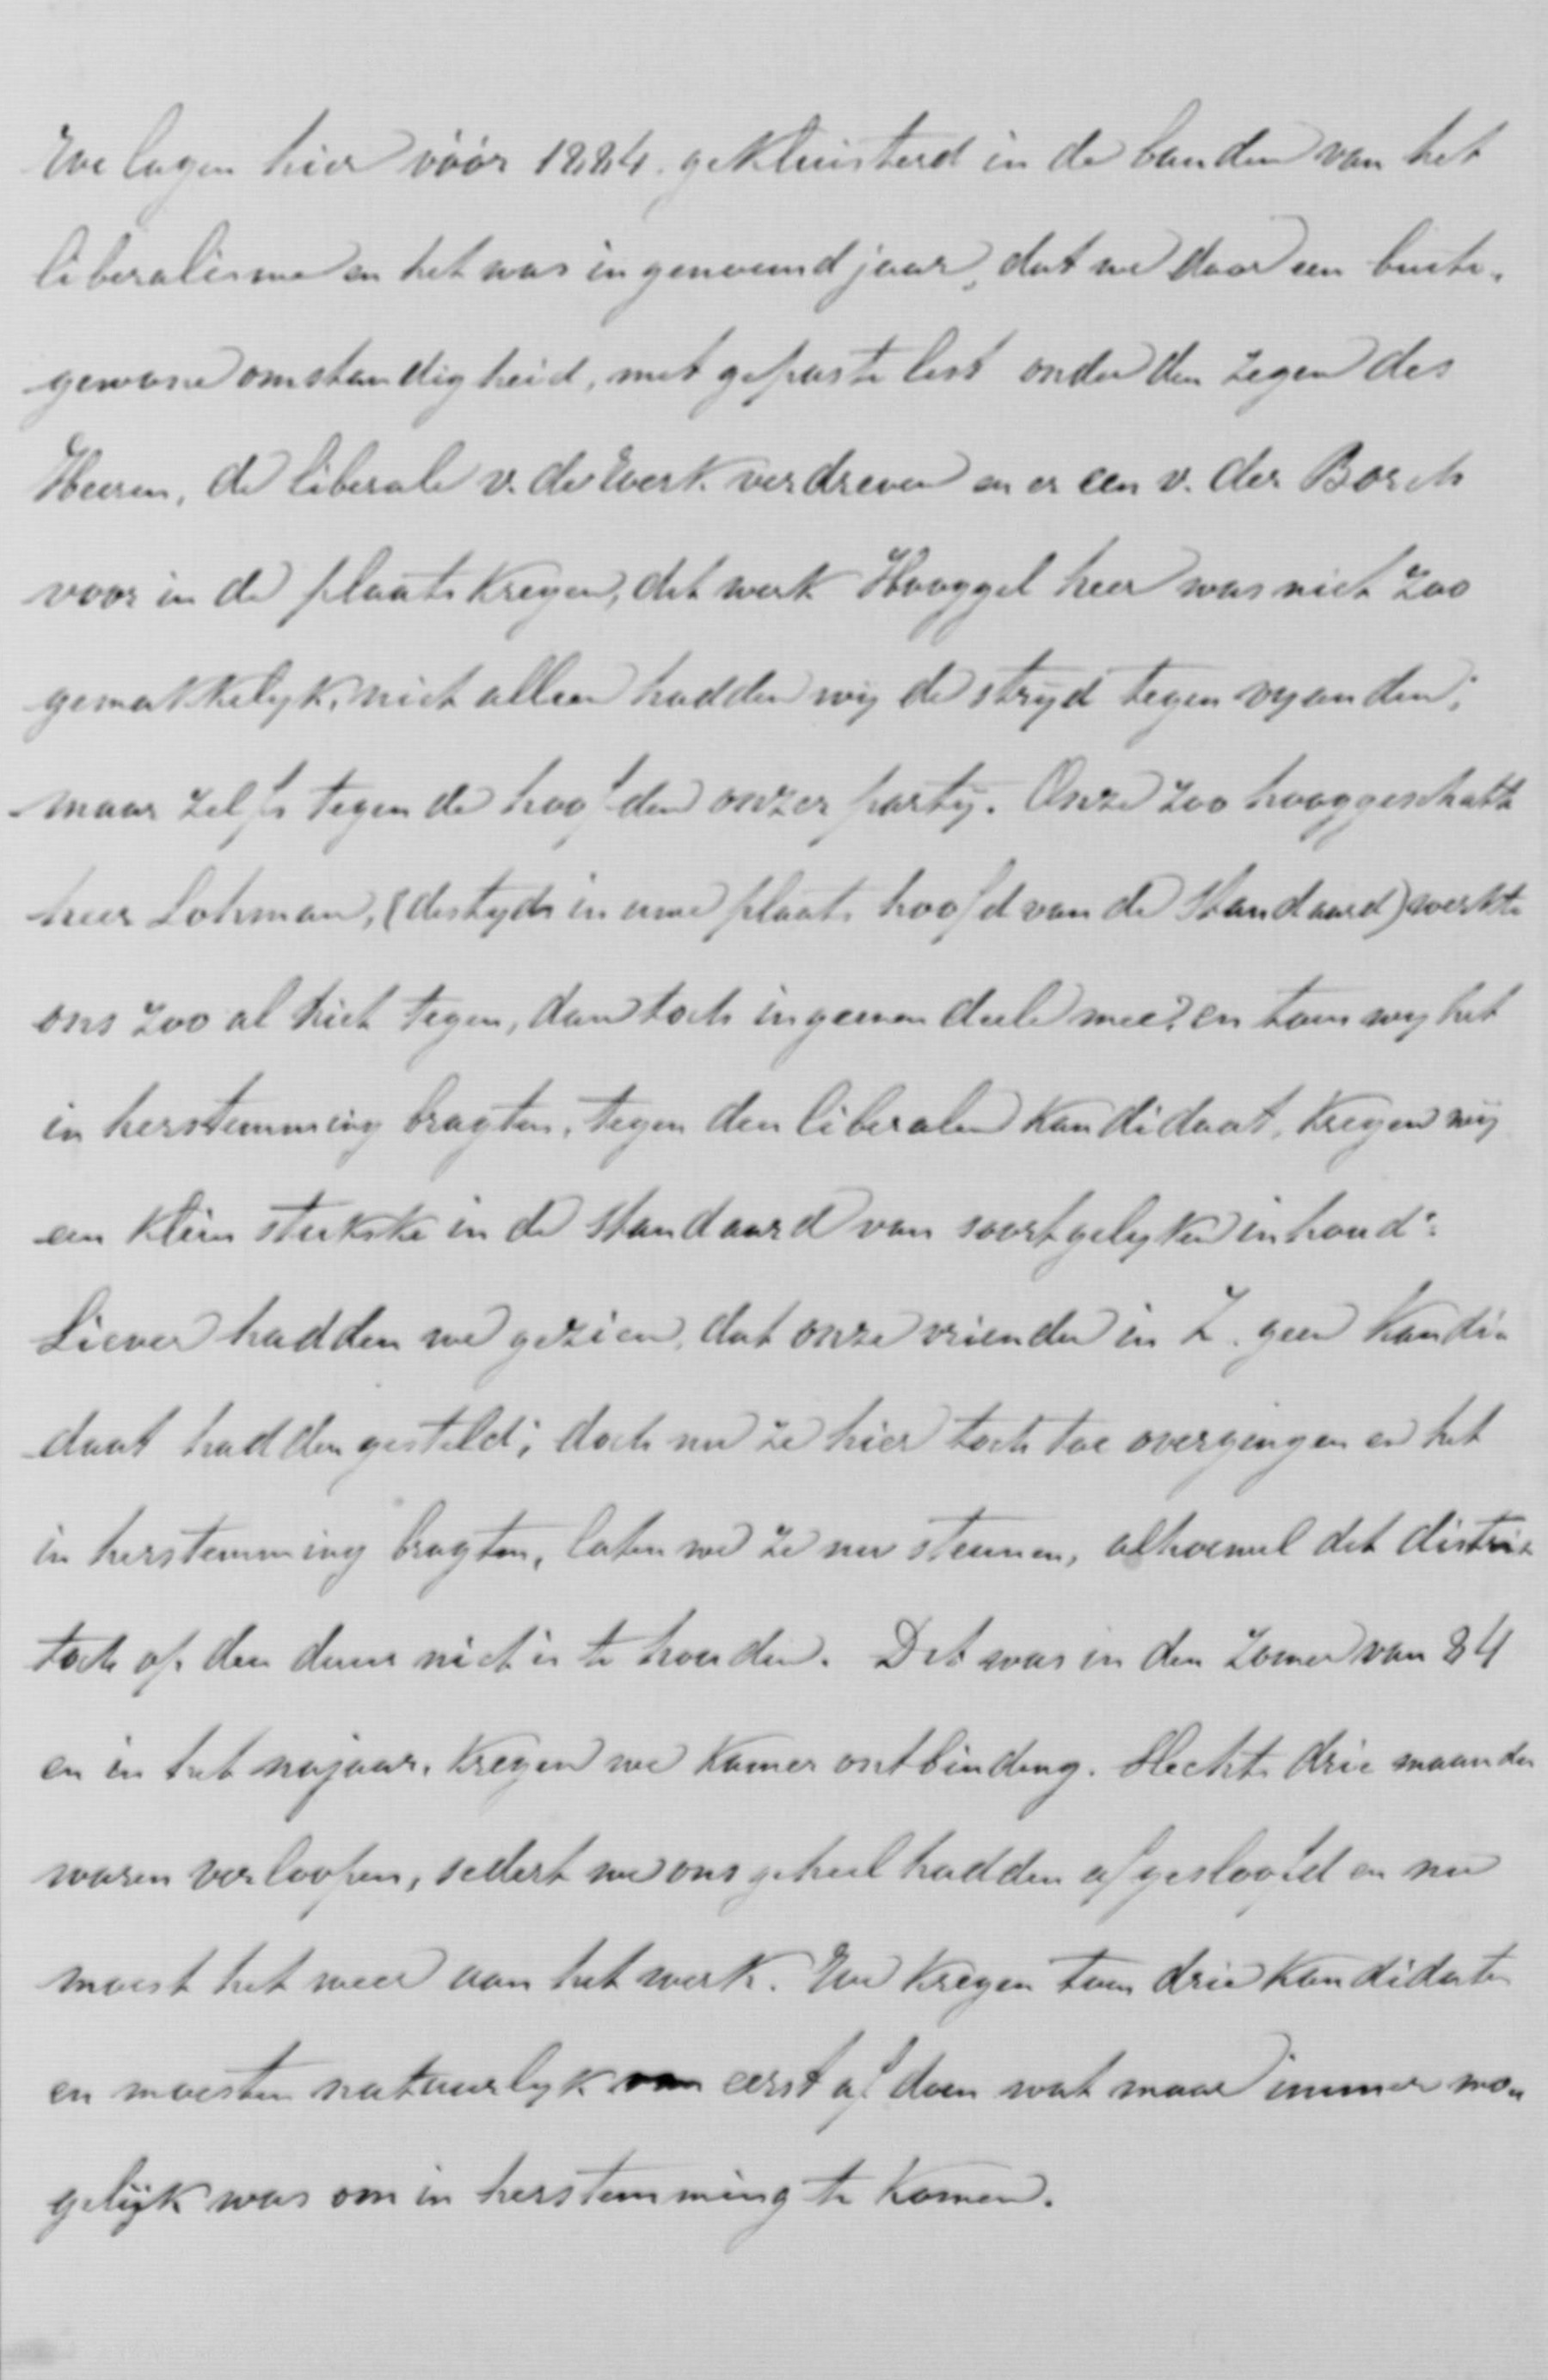 We lagen hier vóór 1884 gekluisterd in de banden van het
liberalisme en het was in genoemd jaar, dat we door een buite-
gewone omstandigheid, met gepaste list onder den zegen des
Heeren, de liberale v. de Werk verdreven en er een v. der Borch
voor in de plaats kregen, dit werk Hooggel heer was niet zoo
gemakkelyk, niet alleen hadden wij de stryd tegen vyanden;
maar zelfs tegen de hoofden onzer party. Onze zoo hooggeschatte
heer Lohman, (destyds in uwe plaats hoofd van de Standaard) werkte
ons zoo al niet tegen, dan toch ingeenen deele mee? en toen wy het
in herstemming bragten, tegen den liberalen kandidaat, kregen wij
een klein stukske in de Standaard van soortgelyken inhoud:
Liever hadden we gezien, dat onze vrienden in Z. geen kandi-
daat hadden gesteld; doch nu ze hier toch toe overgingen en het
in herstemming bragten, laten we ze nu steunen, alhoewel dit distric
toch op den duur niet is te houden. Dit was in den zomer van 84
en in het najaar, kregen we kamer ontbinding. Slechts drie maanden
waren verloopen, sedert we ons geheel hadden afgesloofd en nu
moest het weer aan het werk. We kregen toen drie kandidaten
en moesten natuurlyk eerst af doen wat maar immer mo-
gelijk was om in herstemming te komen.